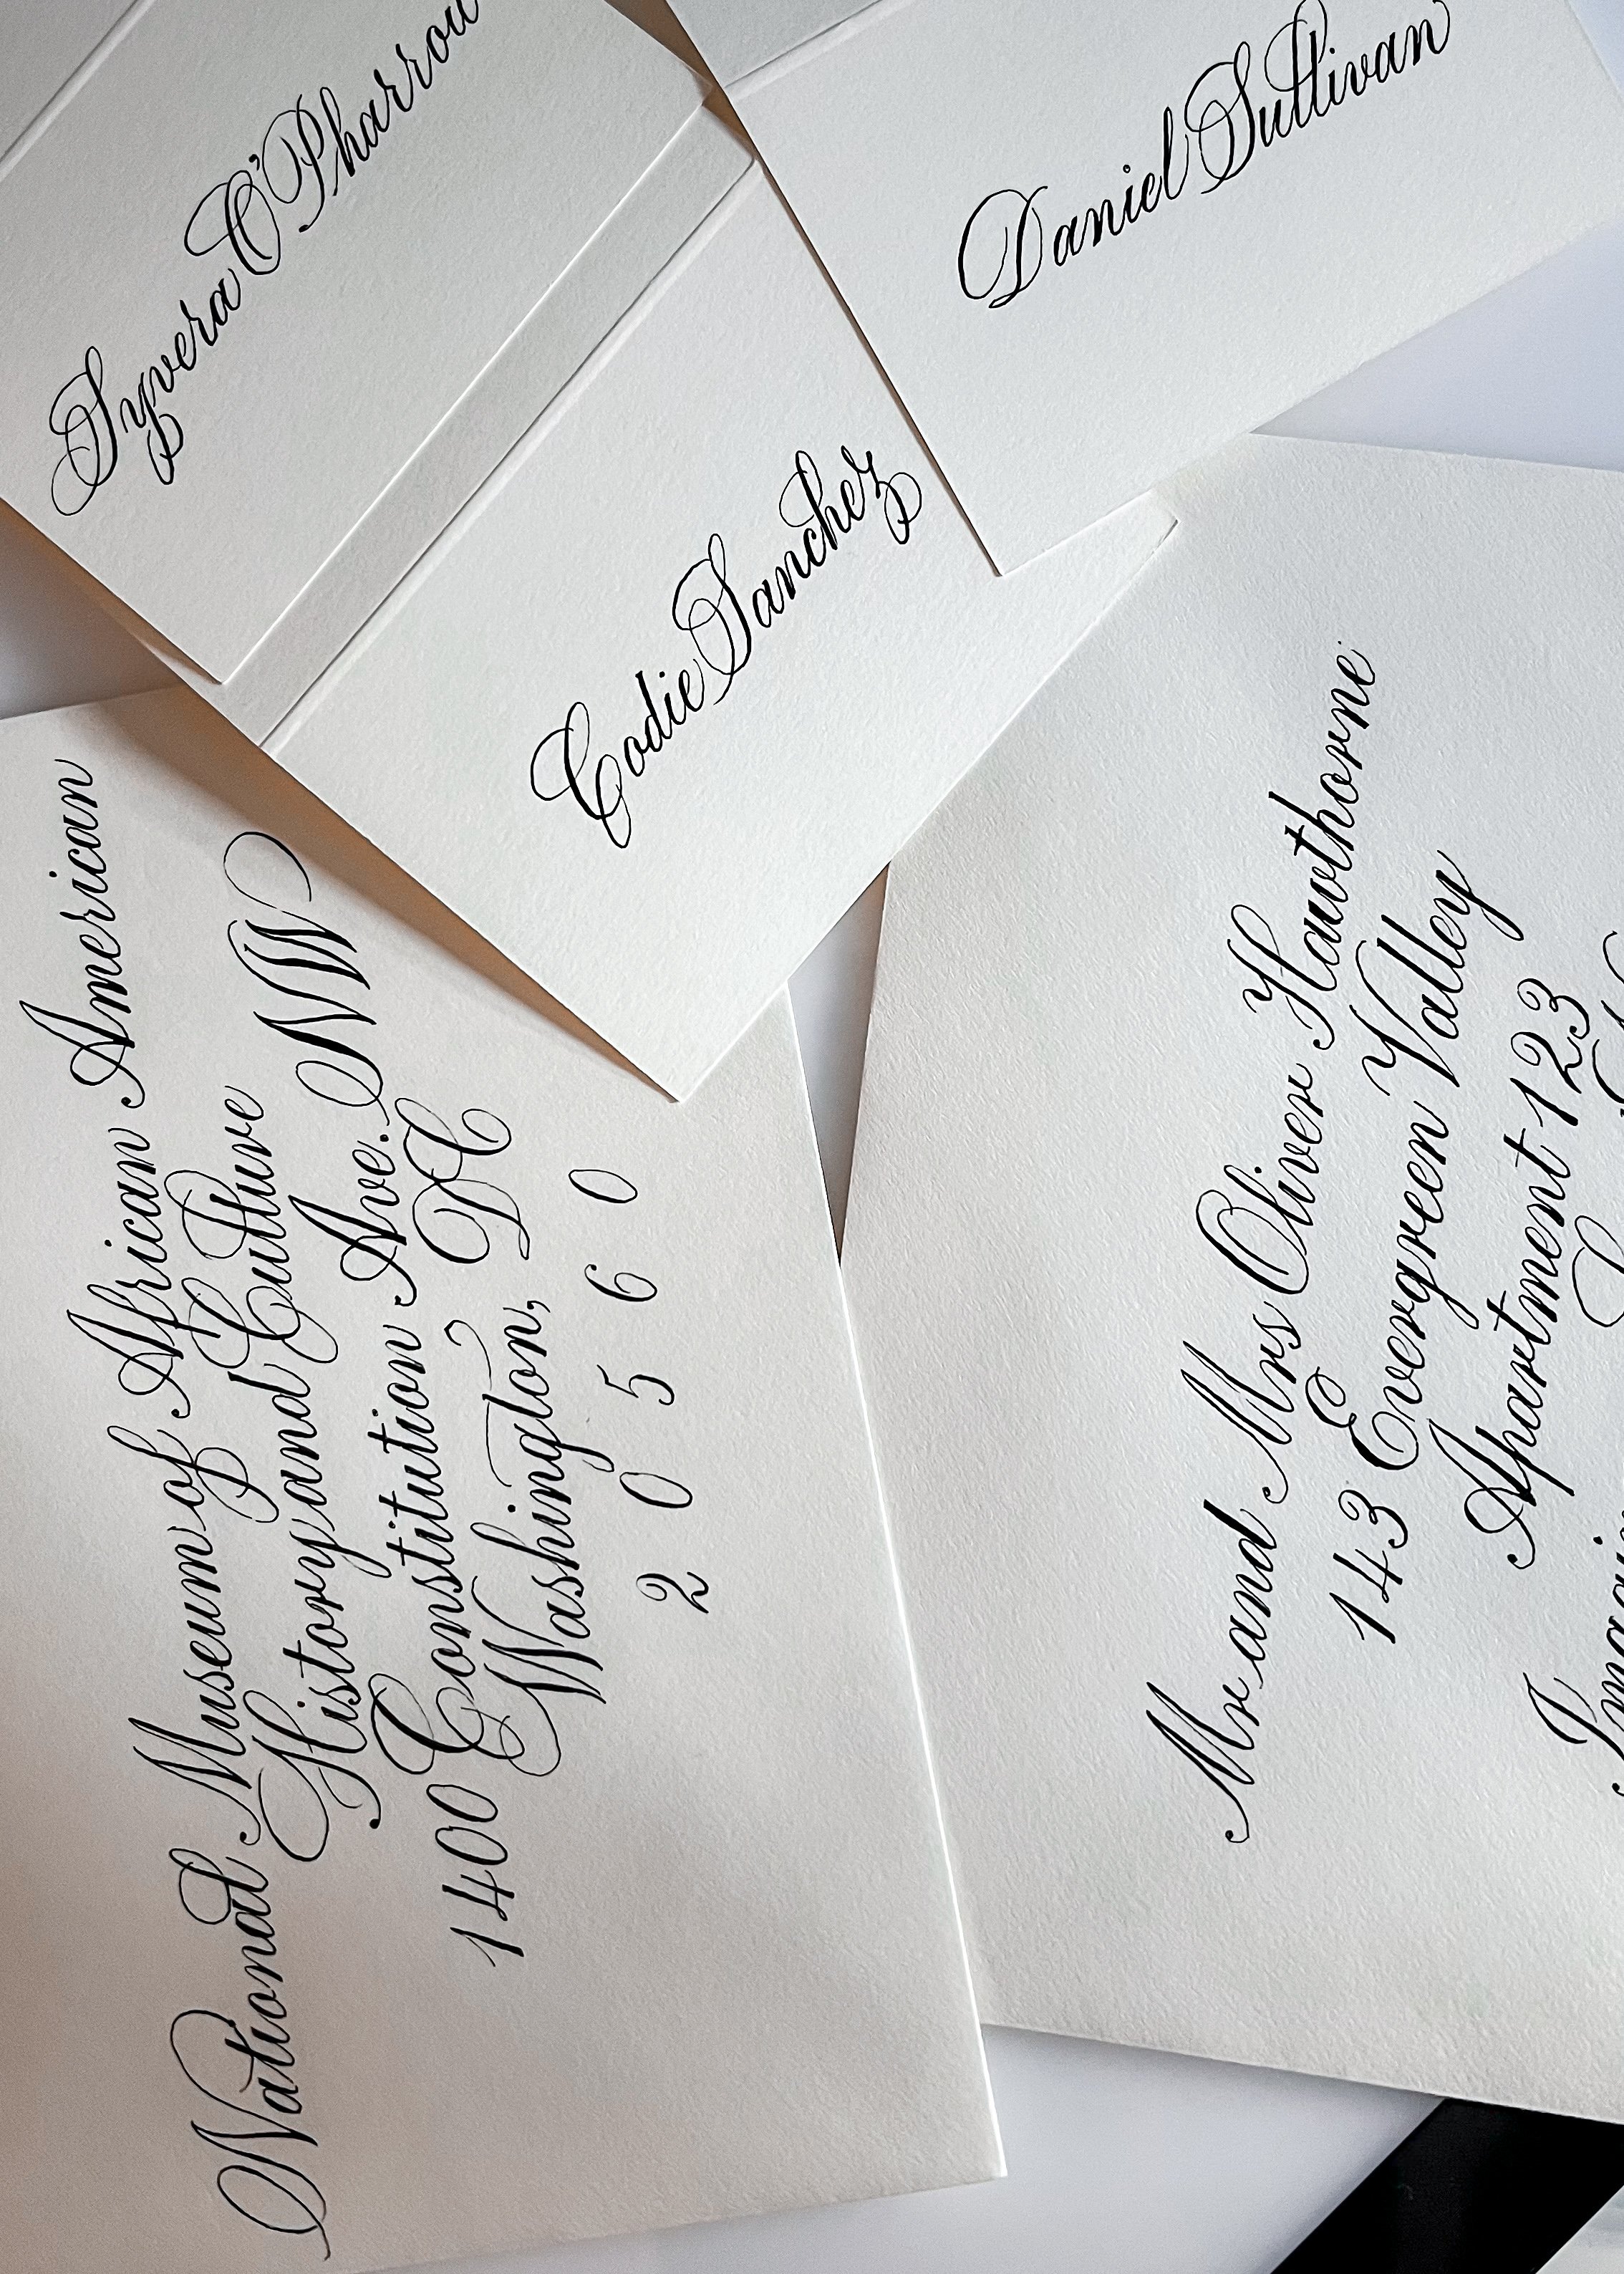 Syvera O'Pharrow
Daniel Sullivan
Codie Sanchez
National Museum of African American
History and Culture
1400 Constitution Ave. NW
Washington, DC
2 0 5 6 0
Mr and Mrs Oliver Hawthorne
143 Evergreen Valley
Apartment 123